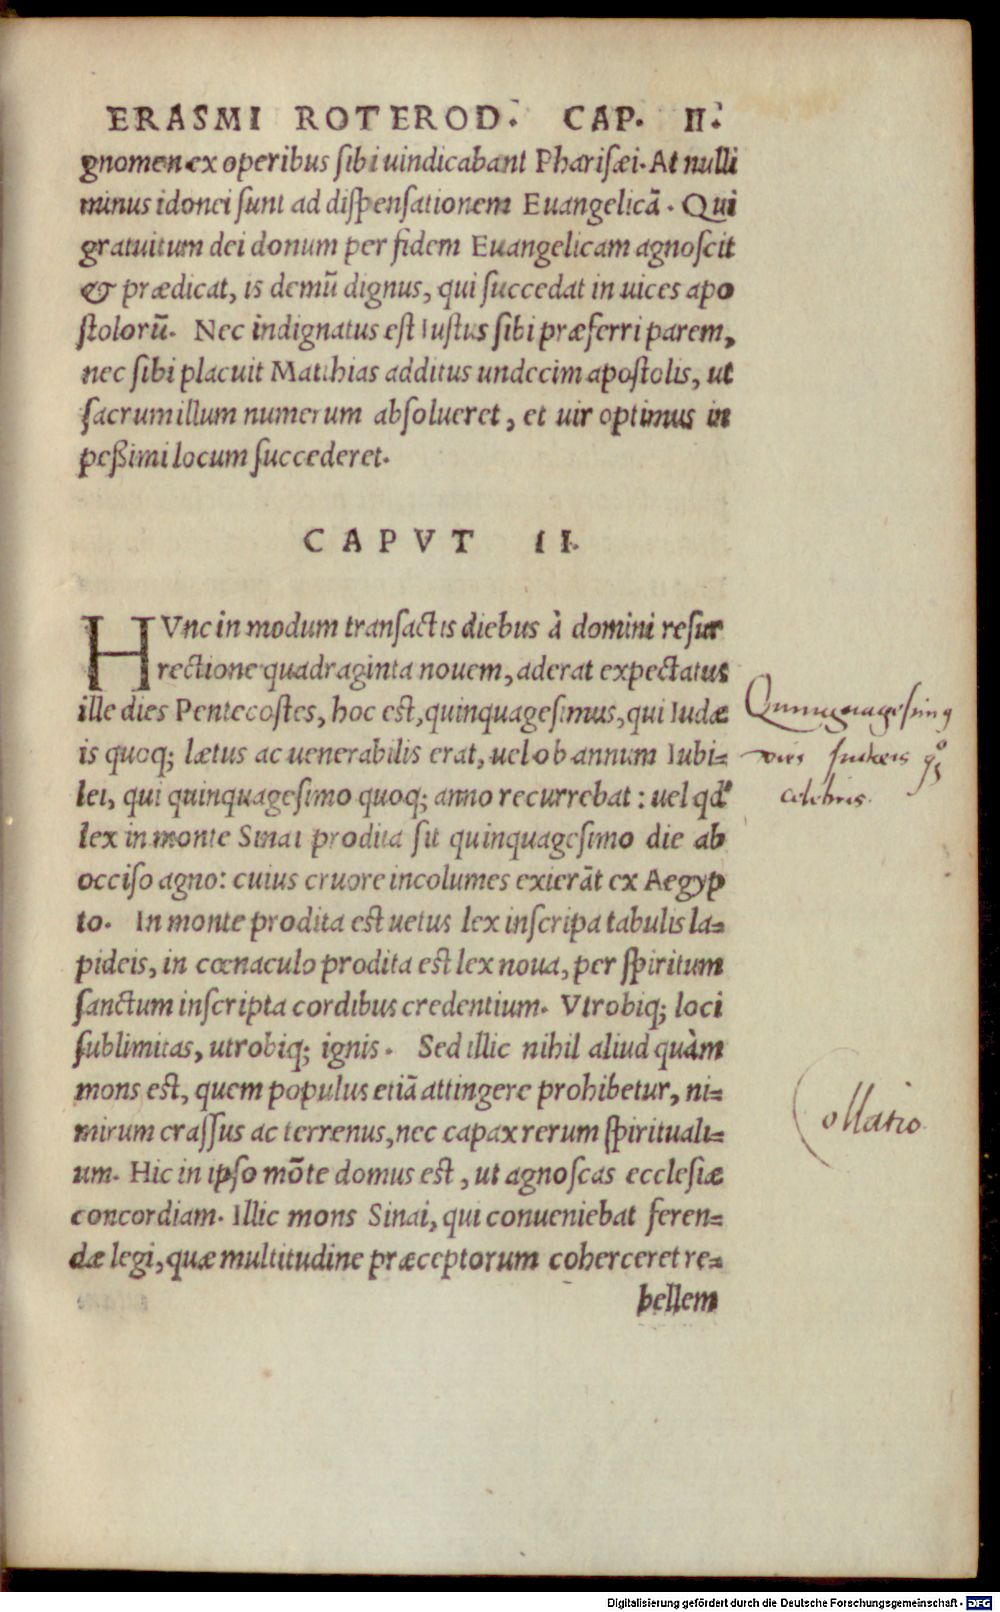 ERASMI ROTEROD. CAP. II.
gnomen ex operibus sibi uindicabant Pharisæi. At nulli
minus idonei sunt ad dispensationem Euangelicā. Qui
gratuitum dei donum per fidem Euangelicam agnoscit
& prædicat, is demū dignus, qui succedat in uices apo
stolorū. Nec indignatus est Iustus sibi præferri parem,
nec sibi placuit Matthias additus undecim apostolis, ut
sacrum illum numerum absolueret, et uir optimus in
peßimi locum succederet.
CAPVT II.
HVnc in modum transactis diebus à domini resur
rectione quadraginta nouem, aderat expectatus
ille dies Pentecostes, hoc est, quinquagesimus, qui Iudæ
is quoq; lætus ac uenerabilis erat, uel ob annum Iubi-
lei, qui quinquagesimo quoq; anno recurrebat: uel qd'
lex in monte Sinai prodita sit quinquagesimo die ab
occiso agno: cuius cruore incolumes exierāt ex Aegyp
to. In monte prodita est uetus lex inscripa tabulis la-
pideis, in cœnaculo prodita est lex noua, per spiritum
sanctum inscripta cordibus credentium. Vtrobiq; loci
sublimitas, utrobiq; ignis. Sed illic nihil aliud quàm
mons est, quem populus etiā attingere prohibetur, ni-
mirum crassus ac terrenus, nec capax rerum spirituali-
um. Hic in ipso mōte domus est, ut agnoscas ecclesiæ
concordiam. Illic mons Sinai, qui conueniebat feren-
dæ legi, quæ multitudine præceptorum coherceret re-
bellem
celebris.
Collatio.
Digitalisierung gefördert durch die Deutsche Forschungsgemeinschaft - DFG